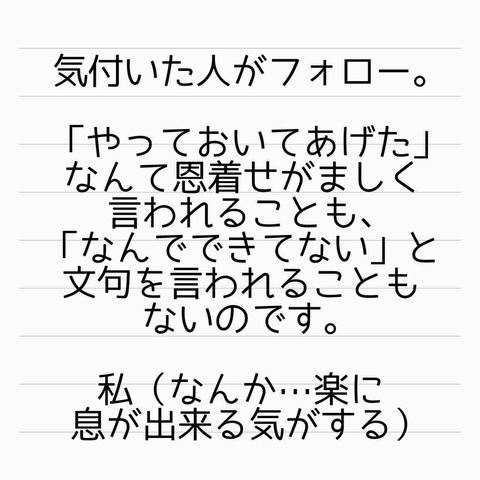 気付いた人がフォロー。
「やっておいてあげた」
なんて恩着せがましく
言われることも、
「なんでできてない」と
文句を言われることも
ないのです。
私（なんか…楽に
息が出来る気がする）